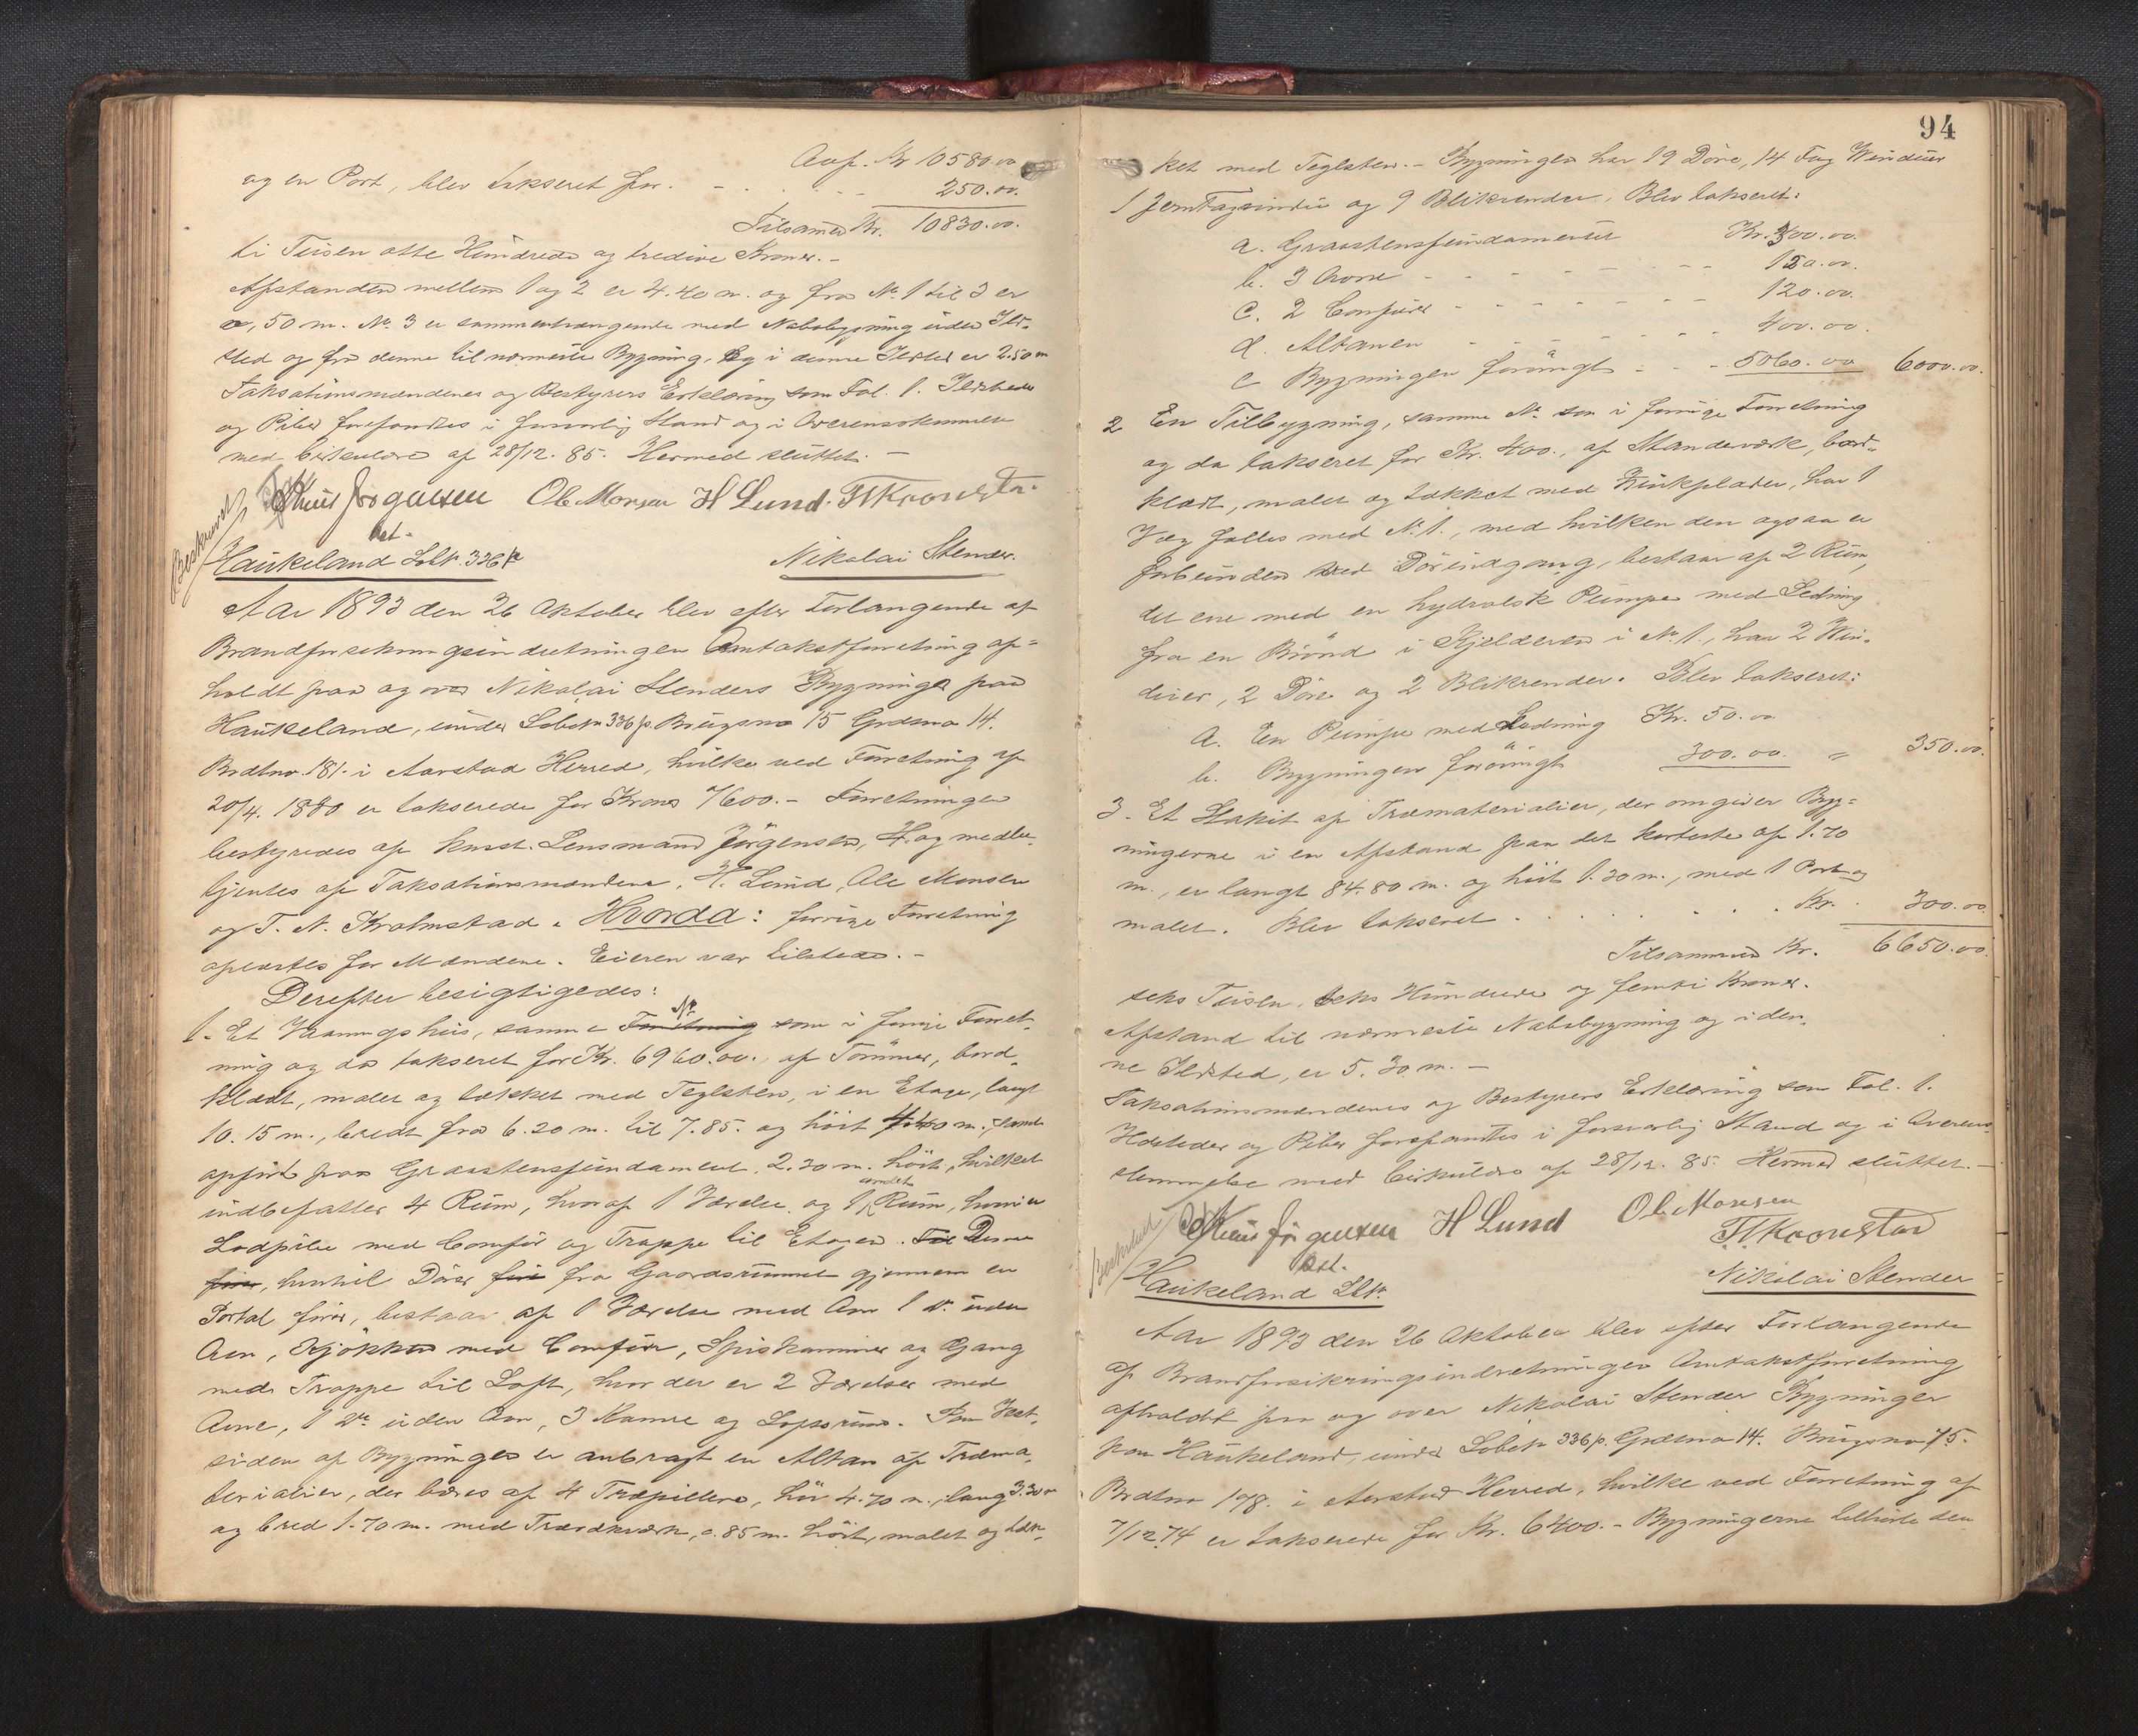 Ovf. Kr 10580.00
og en Port, blev takseret for. - . . . - 250.00.
Tilsamen Kr. 10830.00.
ti Tusen otte Hundrede og tredive Kroner. -
Afstanden mellem 1 og 2 er 4.40 m. og fra No. 1 til 3 er
0,50 m. No. 3 er sammenhængende med Nabobygning uden Ild-
sted og fra denne til nærmeste Bygning, og i denne Ildsted er 2.50 m
Taksationsmændenes og Bestyrers Erklæring som Fol. 1. Ildsteder
og Piber forefandtes i forsvarlig Stand og i Overensstemmelse
med Cirkulære af 28/12. 85. Hermed sluttet. -
Jørgensen Ole Monsen H Lund.
kst.
Beskrevet
Haukeland Lobk. 336 p Nikolai Stender.
Aar 1893 den 26 Oktober blev efter Forlangende af
Brandforsikringsindretningen Omtakstforretning af-
holdt paa og over Nikolai Stenders Bygninger paa
Haukeland, under Lobekn 336 p Brugsno 15 Grdsno 14.
Brdtno. 181. i Aarstad Herred, hvilke ved Forretning af
20/4. 1880 er takserede for Kroner 7600. - Forretningen
bestyredes af konst. Lensmand Jørgensen, H. og medbe-
tjentes af Taksationsmændene, H. Lund, Ole Monsen
og T. N. Kolmstad. Hvorda: forrige Forretning
oplæstes for Mændene. Eieren var tilstede. -
Derefter besigtigedes:
1. Et Vaaningshus, samme No som i forrige Forret-
ning og da takseret for Kr. 6960.00., af Tømmer, bord-
klædt, malet og tækket med Teglsten, i en Etage, langt
10.15 m., bredt fra 6.20 m. til 7.85. og høit 4.40 m., samt
opført paa Graastensfundament 2.30 m. høit, hvilket
indbefatter 4 Rum, hvoraf 1 Værelse og 1 andet Rum, hvori er
Lodpibe med Comfur og Trappe til Etagen. Denne
, hvortil Dører fra Gaardsrummet gjennem en
Portal fører, bestaar af 1 Værelse med Ovn 1 do. uden
Ovn, Kjøkken med Comfur, Spiskammer og Gang
med Trappe til Loft, hvor der er 2 Værelser med
Ovne, 1 do uden Ovn, 3 Kamre og Loftsrum. Paa Vest-
siden af Bygningen er anbragt en Altan af Træma-
terialier, der bæres af 4 Træpillere, høi 4.70 m., lang 3.30 m
og bred 1.70 m. med Trærækværk, 0.85 m. høit, malet og tæk-
94
ket med Teglsten. - Bygningen har 19 Døre, 14 Fag Winduer
1 Jerntagvindu og 9 Blikrender. Blev takseret:
a. Graastensfundamentet Kr. 300.00.
b. 3 Ovne - - - - - - 120.00.
c. 2 Comfurer - - - - - - 120.00.
d. Altanen - - - - - - 400.00.
e Bygningen forøvrigt - - - 5060.00 6000.00.
2 En Tilbygning, samme No. som i forrige Forretning
og da takseret for Kr. 400., af Standeværk, bord-
klædt, malet og tækket med Zinkplader, har 1
Væg fælles med No. 1., med hvilken den ogsaa er
forbunden med Dörindgang, bestaar af 2 Rum,
det ene med en hydraulisk Pumpe med Ledning
fra en Brønd i Kjelderen i No. 1., har 2 Win-
duer, 2 Døre og 2 Blikrender. Blev takseret:
a. En Pumpe med Ledning Kr. 50.00
b. Bygningen forøvrigt 300.00. " 350.00.
3. Et Stakit af Træmaterialier, der omgiver Byg-
ningerne i en Afstand paa det korteste af 1.70
m., er langt 84.80 m. og høit 1.30 m., med 1 Port og
malet. Blev takseret . . . . . . Kr. . 300.00.
Tilsammen Kr. 6650.00.
seks Tusen, seks Hundrede og femti Kroner.
Afstand til nærmeste Nabobygning og i den-
ne Ildsted, er 5.30 m. -
Taksationsmændenes og Bestyrers Erklæring som Fol. 1.
Ildsteder og Piber forefandtes i forsvarlig Stand og i Overens-
stemmelse med Cirkulære af 28/12. 85. Hermed sluttet. -
Jørgensen H Lund Ole Monsen
kst.
Beskrevet
Haukeland Lbk. Nikolai Stender
Aar 1893 den 26 Oktober blev efter Forlangende
af Brandforsikringsindretningen Omtakstforretning
afholdt paa og over Nikolai Stender Bygninger
paa Haukeland, under Lobekn 336 p. Grdsno 14. Brugsno 15.
Brdtno 178. i Aarstad Herred, hvilke ved Forretning af
7/12.74 er takserede for Kr. 6400. - Bygningerne tilhørte den